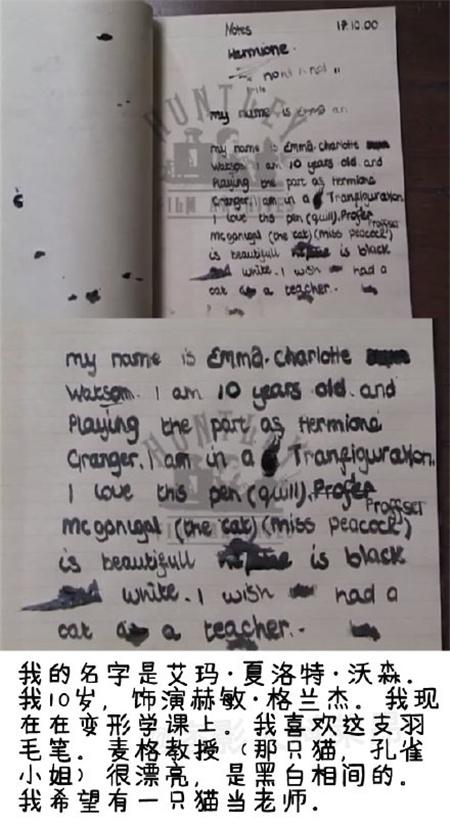 Notes
17.10.00
Hermione.
my name is Emma
my name is Emma. Charlotte
Watson. I am 10 years old. and
Playing the part as Hermione
Granger. I am in a Tranfiguration.
I love this pen (quill). Profer
Proffser
mc gonigal (the cat) (miss peacock)
is beautifull is black
white. I wish had a
cat as a teacher.
HUNTLEY
FILM ARCHIVES
my name is Emma. Charlotte
Watsom. I am 10 years old. and
Playing the part as Hermione
Granger. I am in a Tranfiguration.
I love this pen (quill). Profer
Proffser
mc gonigal (the cat) (miss peacock)
is beautifull is black
white. I wish had a
cat as a teacher.
HUNTLEY
我的名字是艾玛·夏洛特·沃森．
我10岁，饰演赫敏·格兰杰．我现
在在变形学课上．我喜欢这支羽
毛笔．麦格教授（那只猫，孔雀
小姐）很漂亮，是黑白相间的．
我希望有一只猫当老师．